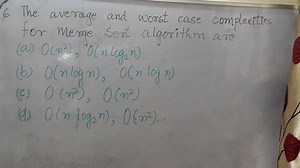 6. The average and worst case complexities
for Merge Sort algorithm are
(a) O(n²), O(n log₂n)
(b) O(n log n), O(n log n)
(c) O(n²), O(n²)
(d) O(n log₂n), O(n²).